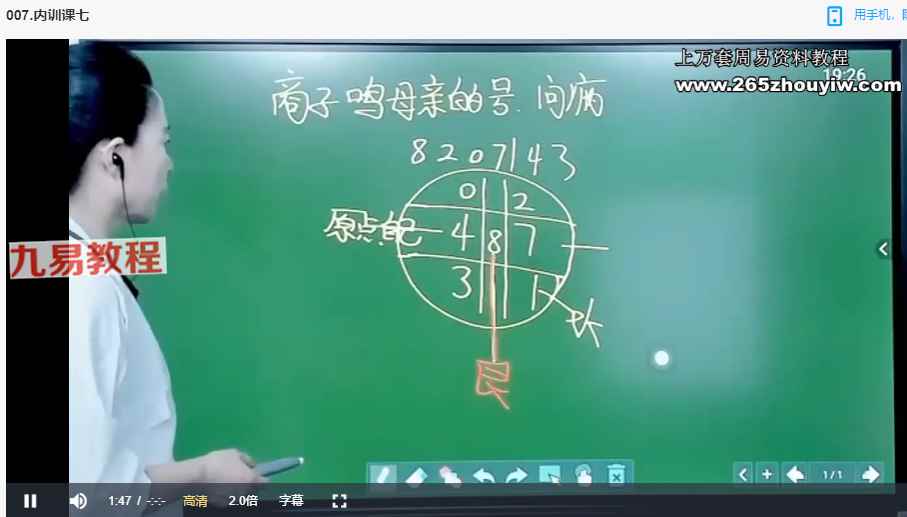 007.内训课七
用手机,
上万套周易资料教程
19:26
www.265zhouyiw.com
商子鸣母亲的号.问病
8207143
0 2
原点自己 4 8 7
3 1
艮
九易教程
1/1
1:47 / -:-:-
高清
2.0倍
字幕